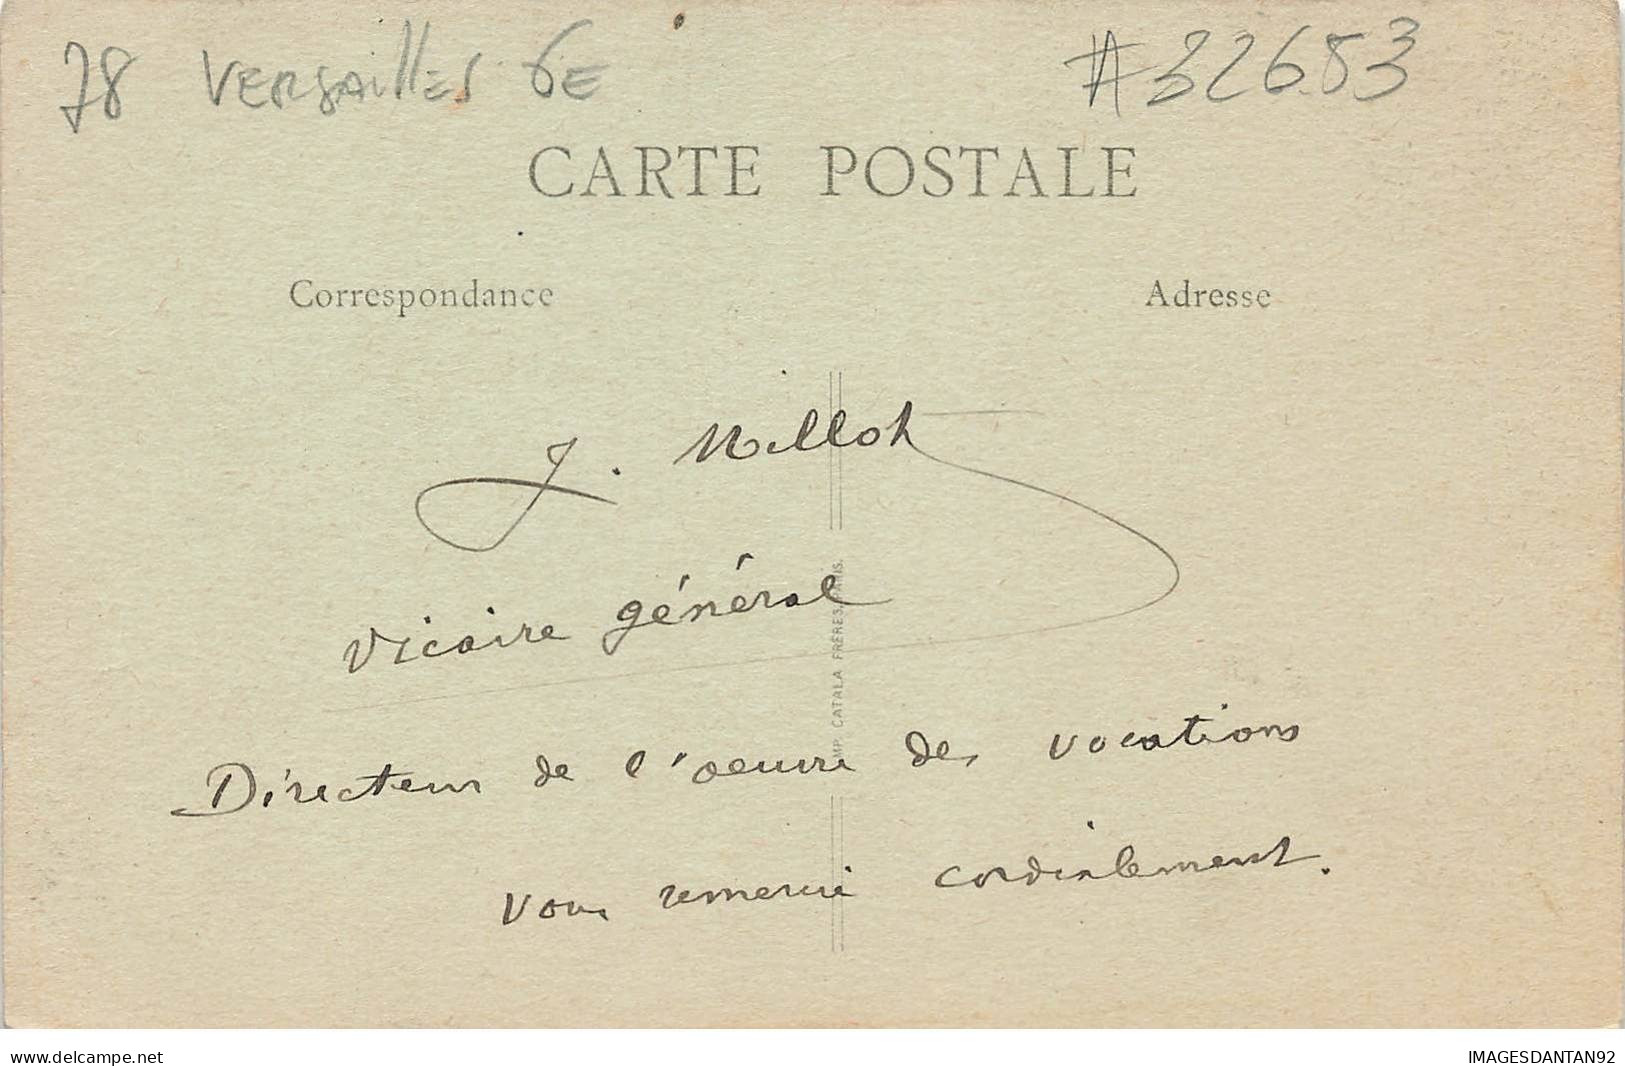 78 VERSAILLES 6E #32683
CARTE POSTALE
Correspondance Adresse
J. Millot
Vicaire général
Directeur de l'oeuvre des vocations
vous remercie cordialement.
IMP. CATALA FRÈRES, PARIS.
www.delcampe.net IMAGESDANTAN92